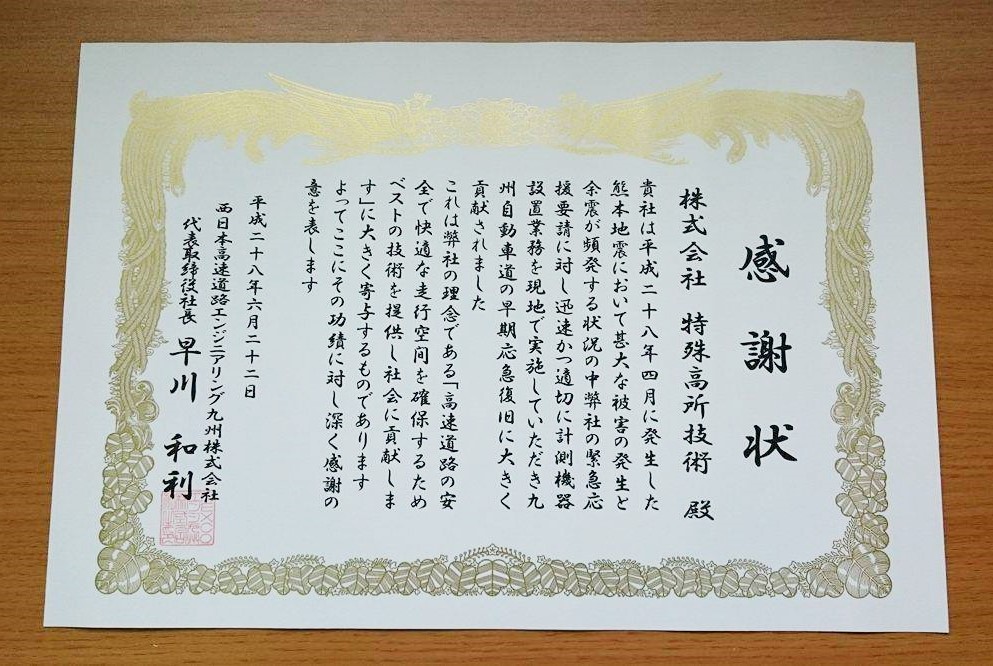 感謝状
株式会社 特殊高所技術 殿
貴社は平成二十八年四月に発生した
熊本地震において甚大な被害の発生と
余震が頻発する状況の中弊社の緊急応
援要請に対し迅速かつ適切に計測機器
設置業務を現地で実施していただき九
州自動車道の早期応急復旧に大きく
貢献されました
これは弊社の理念である「高速道路の安
全で快適な走行空間を確保するため
ベストの技術を提供し社会に貢献しま
す」に大きく寄与するものであります
よってここにその功績に対し深く感謝の
意を表します
平成二十八年六月二十二日
西日本高速道路エンジニアリング九州株式会社
代表取締役社長 早川 和利